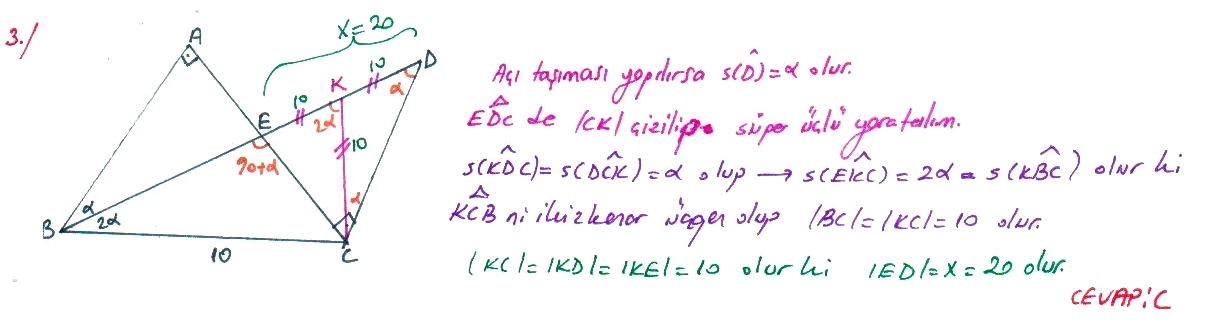 3./
A
x=20
D
10
K
α
E
10
2α
10
90+α
α
B
α
2α
10
C
Açı taşıması yapılırsa s(D̂)=α olur.
EDC de |CK| çizilip süper üçlü yaratalım.
s(KD̂C)=s(DĈK)=α olup → s(EK̂C)=2α=s(KB̂C) olur ki
KCB ni ikizkenar üçgen olup |BC|=|KC|=10 olur.
|KC|=|KD|=|KE|=10 olur ki |ED|=x=20 olur.
CEVAP:C